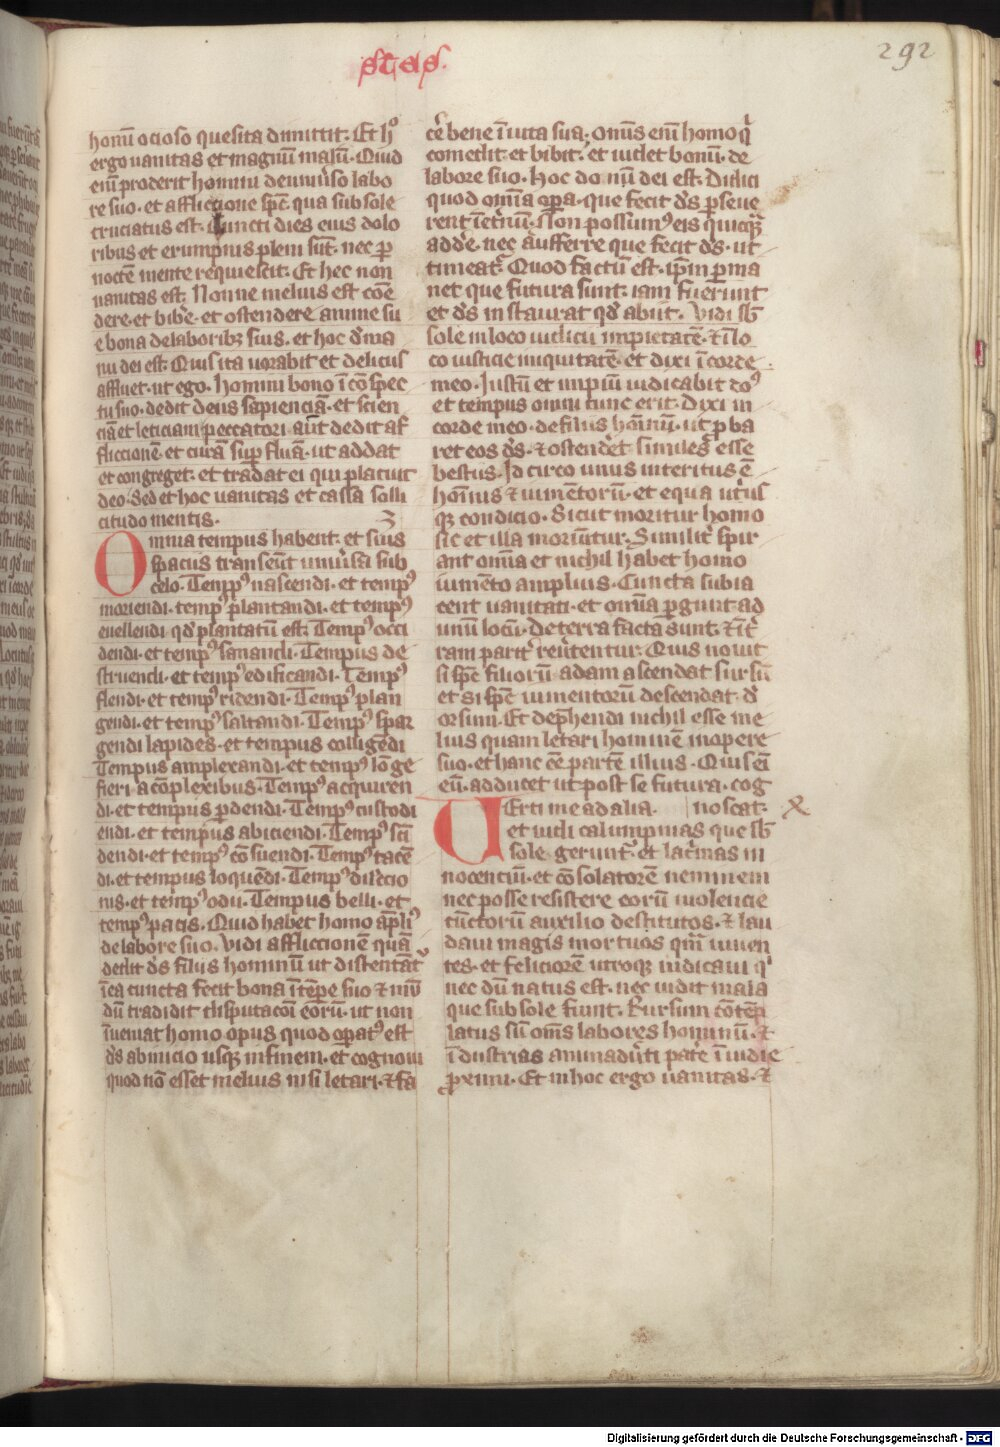 stes.
292
homī ocioso quesita dimittit. Et hͦ
ergo uanitas et magnū malū. Quid
enī proderit homini de uniu͛so labo
re suo. et affliccione spc̄. qua sub sole
cruciatus est. Cuncti dies eius dolo
ribus et erumpnis pleni sūt. nec p̲
noctē mente requiescit. Et hec non
uanitas est. Nonne melius est com̄e
dere. et bibe͛. et ostendere anime su
e bona de laboribꝫ suis. et hoc d͛ma
nu dei est. Quis ita uorabit et delicus
affluet. ut ego. Homini bono ī cōspec
tu suo. dedit deus sapienciā. et scien
ciā et leticiam peccatori aūt dedit af
fliccionē et curā sup̲fluā. ut addat
et congreget. et tradat ei qui placuit
deo. Sed et hoc uanitas et cassa solli
citudo mentis. 3
Omnia tempus habent. et suis
spacus transeūt uniu͛sa sub
celo. Tempꝰ nascendi. et tempꝰ
moriendi. tempꝰ plantandi. et tempꝰ
euellendi qd͛ plantatū est. Tempꝰ occi
dendi. et tempꝰ sanandi. Tempus de
struendi. et tempꝰ edificandi. Tempꝰ
flendi. et tempꝰ ridendi. Tempꝰ plan
gendi. et tempꝰ saltandi. Tempꝰ spar
gendi lapides. et tempus colligēdi
Tempus amplexandi. et tempꝰ lōge
fieri a cōplexibus. Tempꝰ acquiren
di. et tempus p̲dendi. Tempꝰ custodi
endi. et tempus abiciendi. Tempꝰ scī
dendi. et tempꝰ cōsuendi. Tempꝰ tacē
di. et tempus loquēdi. Tempꝰ dilecio
nis. et tempꝰ odii. Tempus belli. et
tempꝰ pacis. Quid habet homo ap̄liꝰ
de labore suo. Vidi affliccionē quā
dedit dс̄ filijs hominū ut distentāt᷑
ī ea cuncta fecit bona ī tēpe suo ⁊ mū
dū tradidit disputacōi eōrū. ut non
īueniat homo opus quod op̲atꝰ est
dс̄ ab inicio usqꝫ in finem. et cognoui
quod nō esset melius nisi letari. ⁊ fa
ce͛ bene ī uita sua. Omīs eīn homo q̄
comedit et bibit. et uidet bonū. de
labore suo. hoc donū dei est. Didici
quod omīa op̲a. que fecit dс̄ p̲seue
rent ī et͛nū. Non possumꝰ eis quicqͣ
adde͛. nec aufferre que fecit dс̄. ut
timeat᷑. Quod factū est. ip̄m p̲ma
net que futura sunt. iam fuerunt
et dс̄ instaurat qd͛ abiit. Vidi sb̄
sole in loco iudicii impietatē. ⁊ ī lo
co iusticie iniquitatē. et dixi ī corde
meo. Justū et impiū iudicabit dсꝰ
et tempus omni tunc erit. Dixi in
corde meo. de filiis homīnū. ut p̲ba
ret eos dс̄. ⁊ ostende͛t similes esse
bestiis. Jdcirco unus interitus ē
homīnis ⁊ iumētorū. et equa ut͛us
qꝫ condicio. Sicut moritur homo
sic et illa moriūtur. Similit᷑ spir
ant omīa et nichil habet homo
iumēto amplius. Cuncta subia
cent uanitati. et omīa p̲gunt ad
unū locū. De terra facta sunt. ⁊ ī t͛
ram parit᷑ reu͛tentur. Quis nouit
si spc̄ filiorū adam ascendat sursū
et si spc̄ iumentorū descendat d͛
orsum. Et dep̲hendi nichil esse me
lius quam letari hominē in opere
suo. et hanc ēē partē illius. Quis eī
eū adducet ut post se futura. cog
noscat.
Uerti me ad alia.
et uidi calumpnias que sb̄
sole gerunt᷑. et lac͛mas in
nocentiū. et cōsolatorē neminem
nec posse resistere eorū uiolencie
cūctorū auxilio destitutos. ⁊ lau
daui magis mortuos qͣm uiuen
tes. et feliciorē utroqꝫ iudicaui q
nec dū natus est. nec uidit mala
que sub sole fiunt. Rursum cōtēp
latus sū om̄s labores homīnū. ⁊
īdustrias animadu͛ti pate͛ ī uidie
proximi. Et in hoc ergo uanitas. ⁊
Digitalisierung gefördert durch die Deutsche Forschungsgemeinschaft - DFG